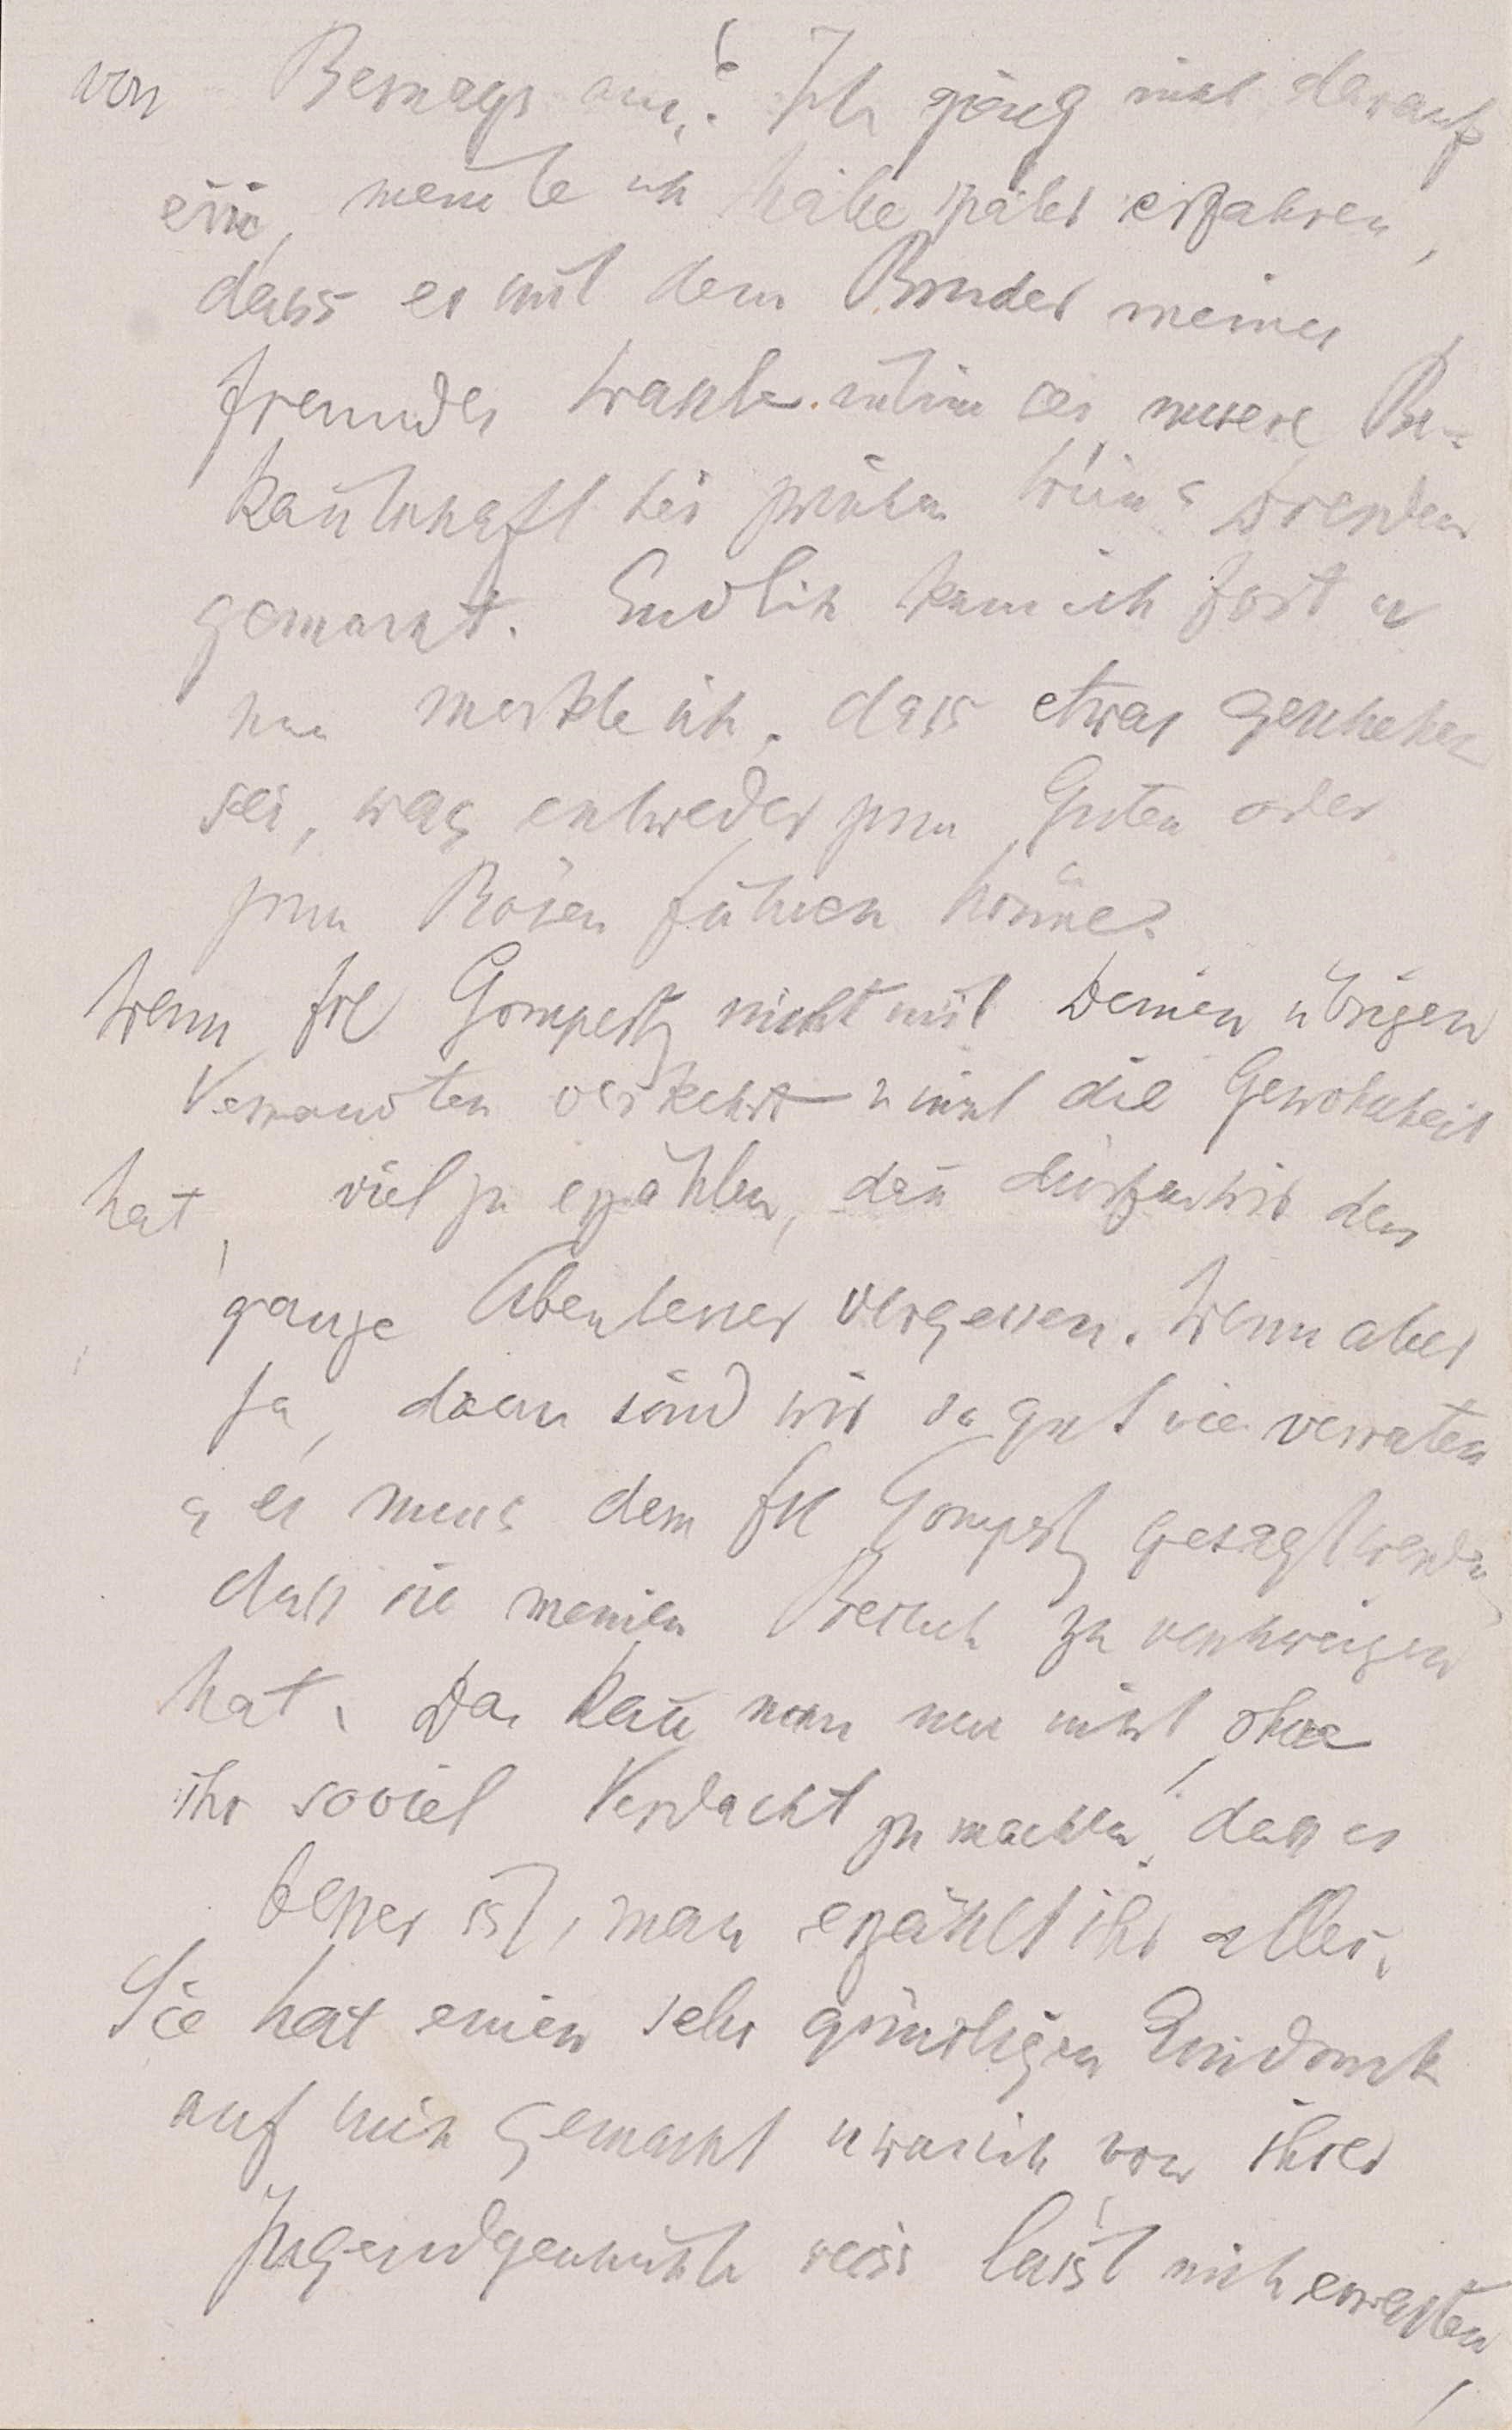 von Bernays an? Ich ging nicht darauf
ein, meinte ich habe später erfahren,
dass er mit dem Bruder meines
Freundes Wahle intim sei, unsere Be-
kan̄tschaft sei zwischen Wien u Dresden
gemacht. Endlich kam ich fort u
nun merkte ich, dass etwas geschehen
sei, was entweder zum Guten oder
zum Bösen führen könne.
Wenn Frl Gompertz nicht mit Deinen übrigen
Verwandten verkehrt u nicht die Gewohnheit
hat, viel zu erzählen, dan̄ dürfen wir das
ganze Abenteuer vergessen. Wenn aber
ja, dann sind wir so gut wie verraten
u es muss dem Frl Gompertz gesagt werden,
dass sie meinen Besuch zu verschweigen
hat. Das kan̄ man nun nicht, ohne
ihr soviel Verdacht zu machen, dass es
besser ist, man erzählt ihr alles.
Sie hat einen sehr günstigen Eindruck
auf mich gemacht u was ich von ihrer
Jugendgeschichte weiss lässt mich erwarten,